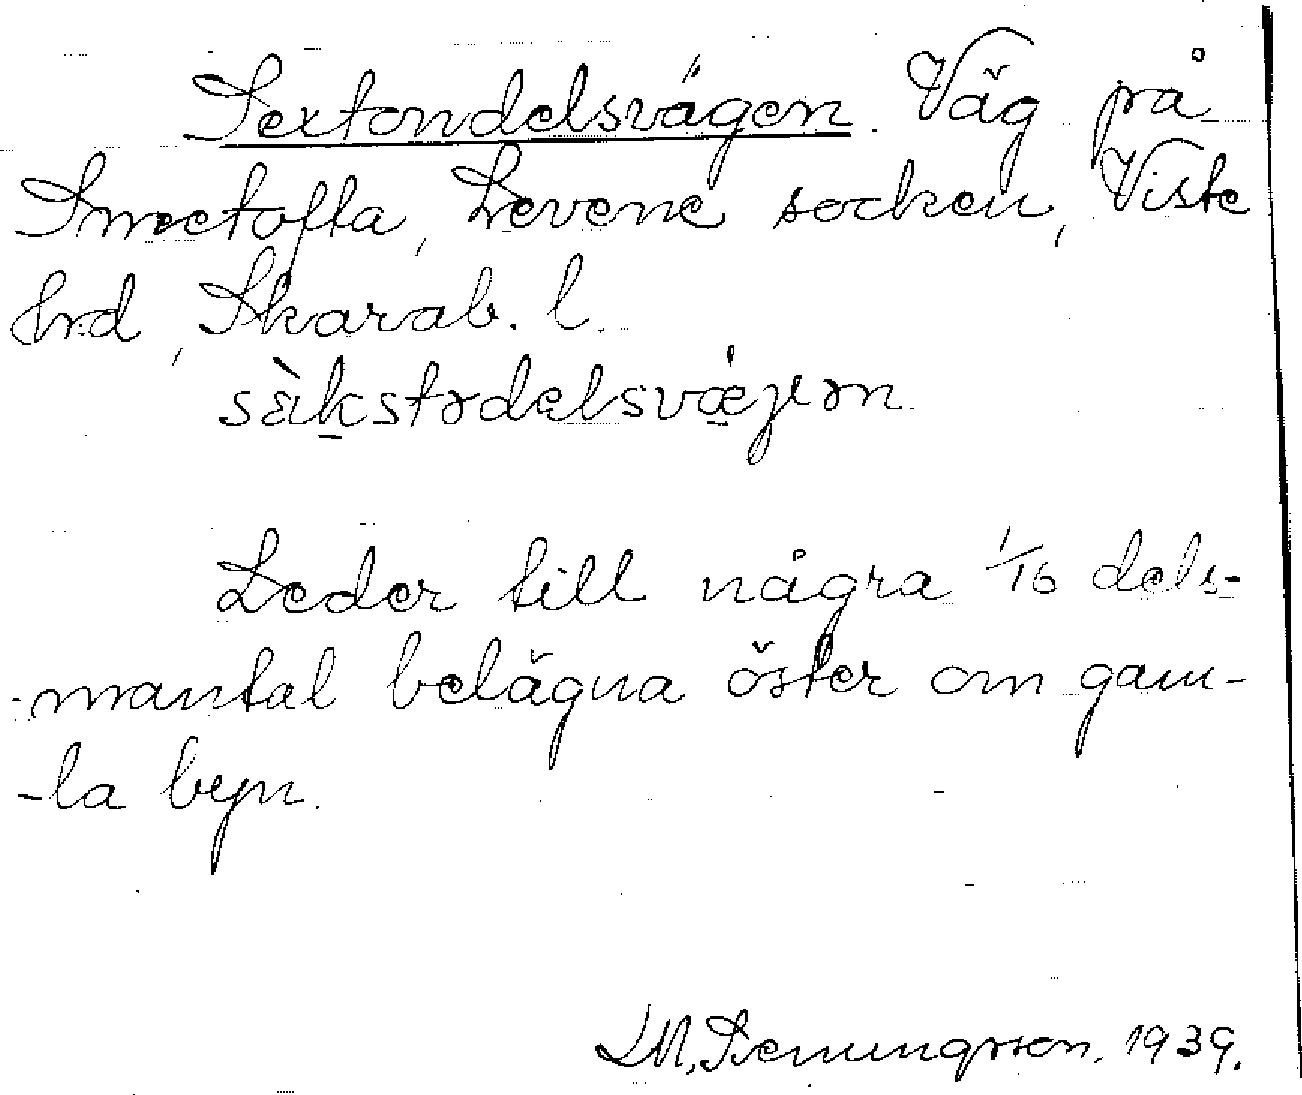 Sextondelsvägen. Väg på
Smetofta, Levene socken, Viste
hrd, Skarab. l.
sä̀kstɔdelsvæjən
Leder till några 1/16 dels-
-mantal belägna öster om gam-
-la byn.
1939.